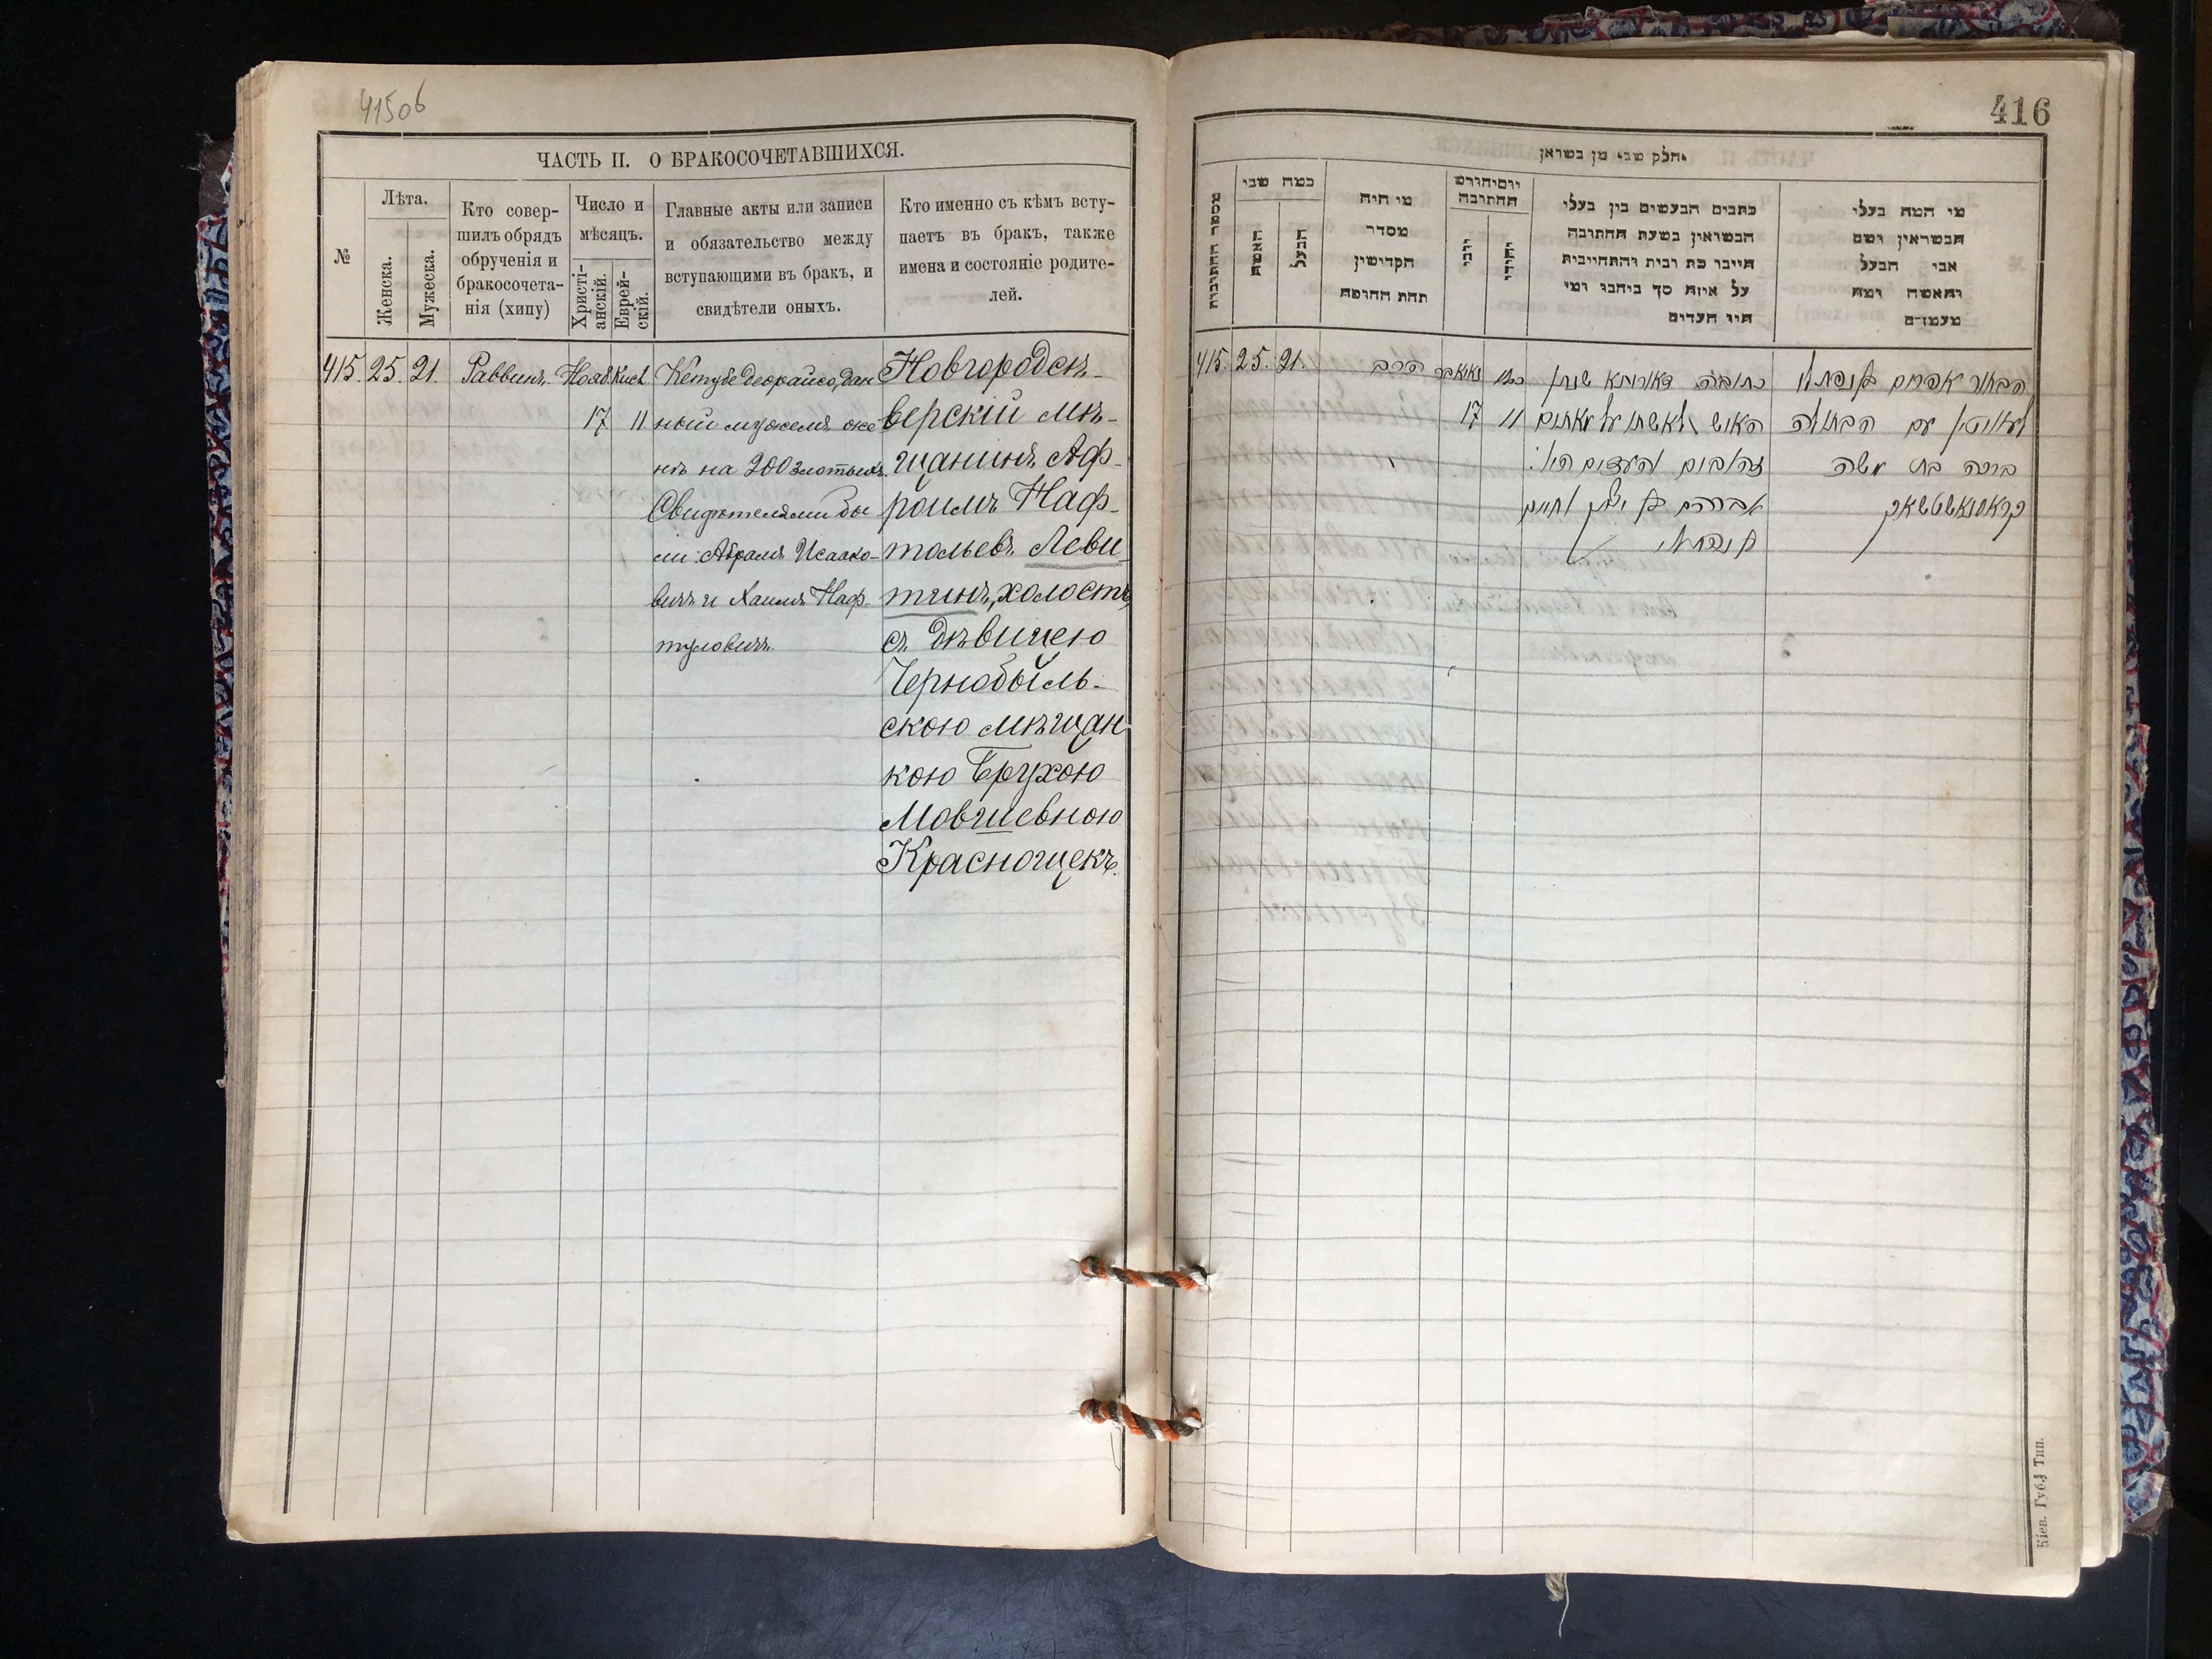 415об
ЧАСТЬ II. О БРАКОСОЧЕТАВШИХСЯ.
№
Лѣта.
Женска.
Мужеска.
Кто совер-
шилъ обрядъ
обрученія и
бракосочета-
нія (хипу)
Число и
мѣсяцъ.
Христі-
анскій.
Еврей-
скій.
Главные акты или записи
и обязательство между
вступающими въ бракъ, и
свидѣтели оныхъ.
Кто именно съ кѣмъ всту-
паетъ въ бракъ, также
имена и состояніе родите-
лей.
415. 25. 21. Раввинъ. Нояб Кисл
17 11
Кетубе деорайсо, дан
ный мужемъ же
нѣ на 200 злотыхъ.
Свидѣтелями бы
ли: Абрамъ Исаако-
вичъ и Хаимъ Наф-
туловичъ.
Новгородсѣ-
верскій мѣ-
щанинъ Аф-
роимъ Наф-
тольевъ Леви
тинъ, холостъ
съ дѣвицею
Чернобыль-
скою мѣщан
кою Брухою
Мовшевною
Краснощекъ.
416
חלק שני מן נשואין
מספר החתונות
כמה שני
האשה
הבעל
מי היה
מסדר
הקדישין
תחת החופה
יום וחודש
החתונה
נוצרי
יהודי
כתבים הנעשים בין בעלי
הנשואין בשעת החתונה
היינו כת ובית והתחייבית
על איזה סך ניתנו ומי
היו העדים
מי המה בעלי
הנשואין ושם
אבי הבעל
והאשה ומה
מעמדם
415. 25. 21. הרב נאיאבר כסלו
17 11
כתובה דאורייתא שנתן
האיש לאשתו על מאתים
זהובים והעדים היו:
אברהם בן יצחק וחיים
בן נפתלי
הבחור אפרים בן נפתלי
לעוויטין עם הבתולה
ברכה בת משה
קראסנאשטשאק
Кіев. Губ. Тип.